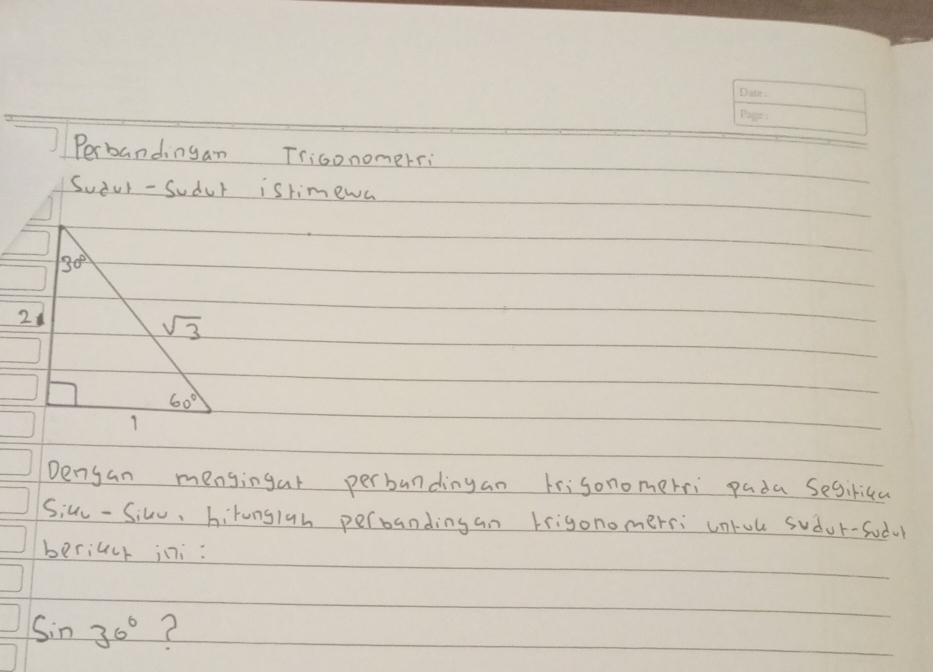 Date:
Page:
Perbandingan Trigonometri
Sudut - Sudut istimewa
30°
2
√3
60°
1
Dengan mengingat perbandingan trigonometri pada Segitiga
Siku - Siku, hitunglah perbandingan trigonometri untuk sudut-sudut
berikut ini :
Sin 30° ?